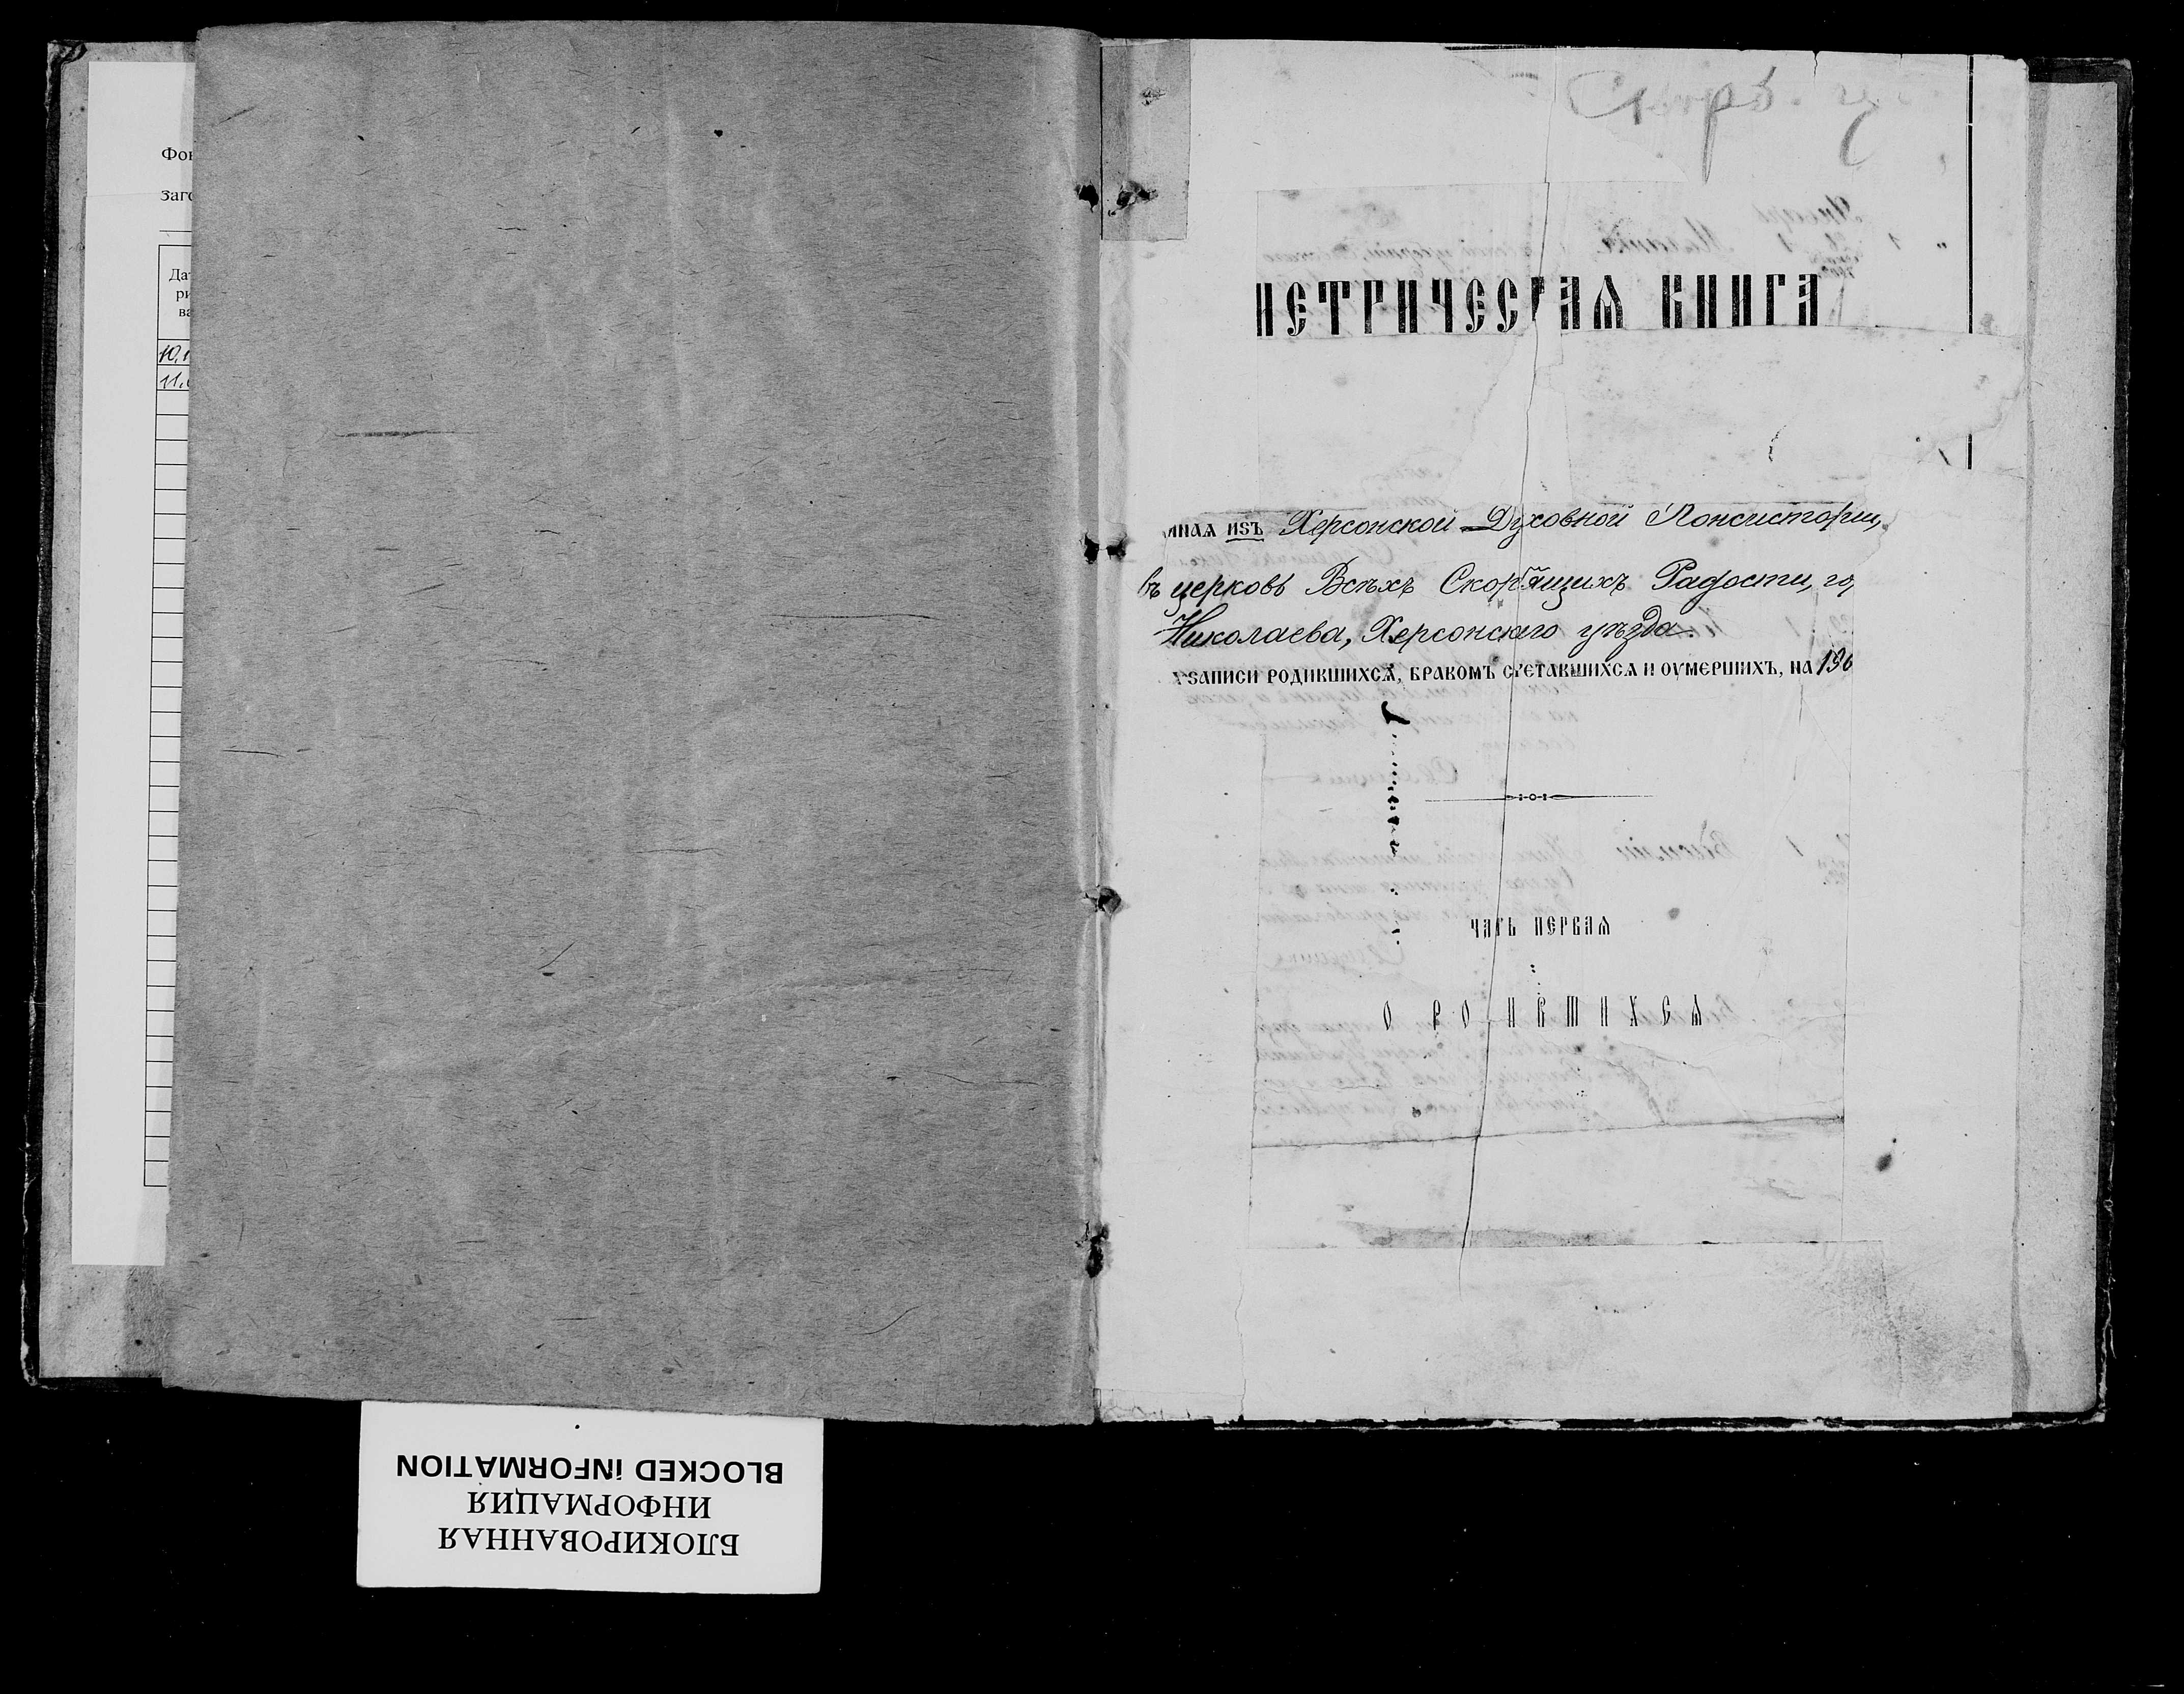 Фон
заго
Дат
ри
ва
10.1
11.0
Скорб.
МЕТРИЧЕСКАѦ КНИГА
ннаѧ изъ Херсонской Духовной Консисторіи,
въ церковь Всѣхъ Скорбящихъ Радости, го
Николаева, Херсонскаго уѣзда.
записи родившихсѧ, бракомъ сочетавшихсѧ и оумершихъ, на 190
ЧАСТЬ ПЕРВАѦ
О РОДИВШИХСѦ
БЛОКИРОВАННАЯ
ИНФОРМАЦИЯ
BLOCKED iNFORMATION